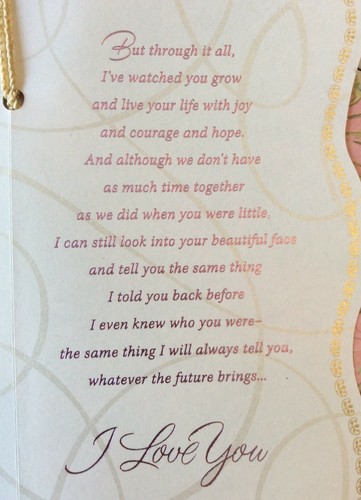 But through it all,
I've watched you grow
and live your life with joy
and courage and hope.
And although we don't have
as much time together
as we did when you were little,
I can still look into your beautiful face
and tell you the same thing
I told you back before
I even knew who you were–
the same thing I will always tell you,
whatever the future brings...
I Love You